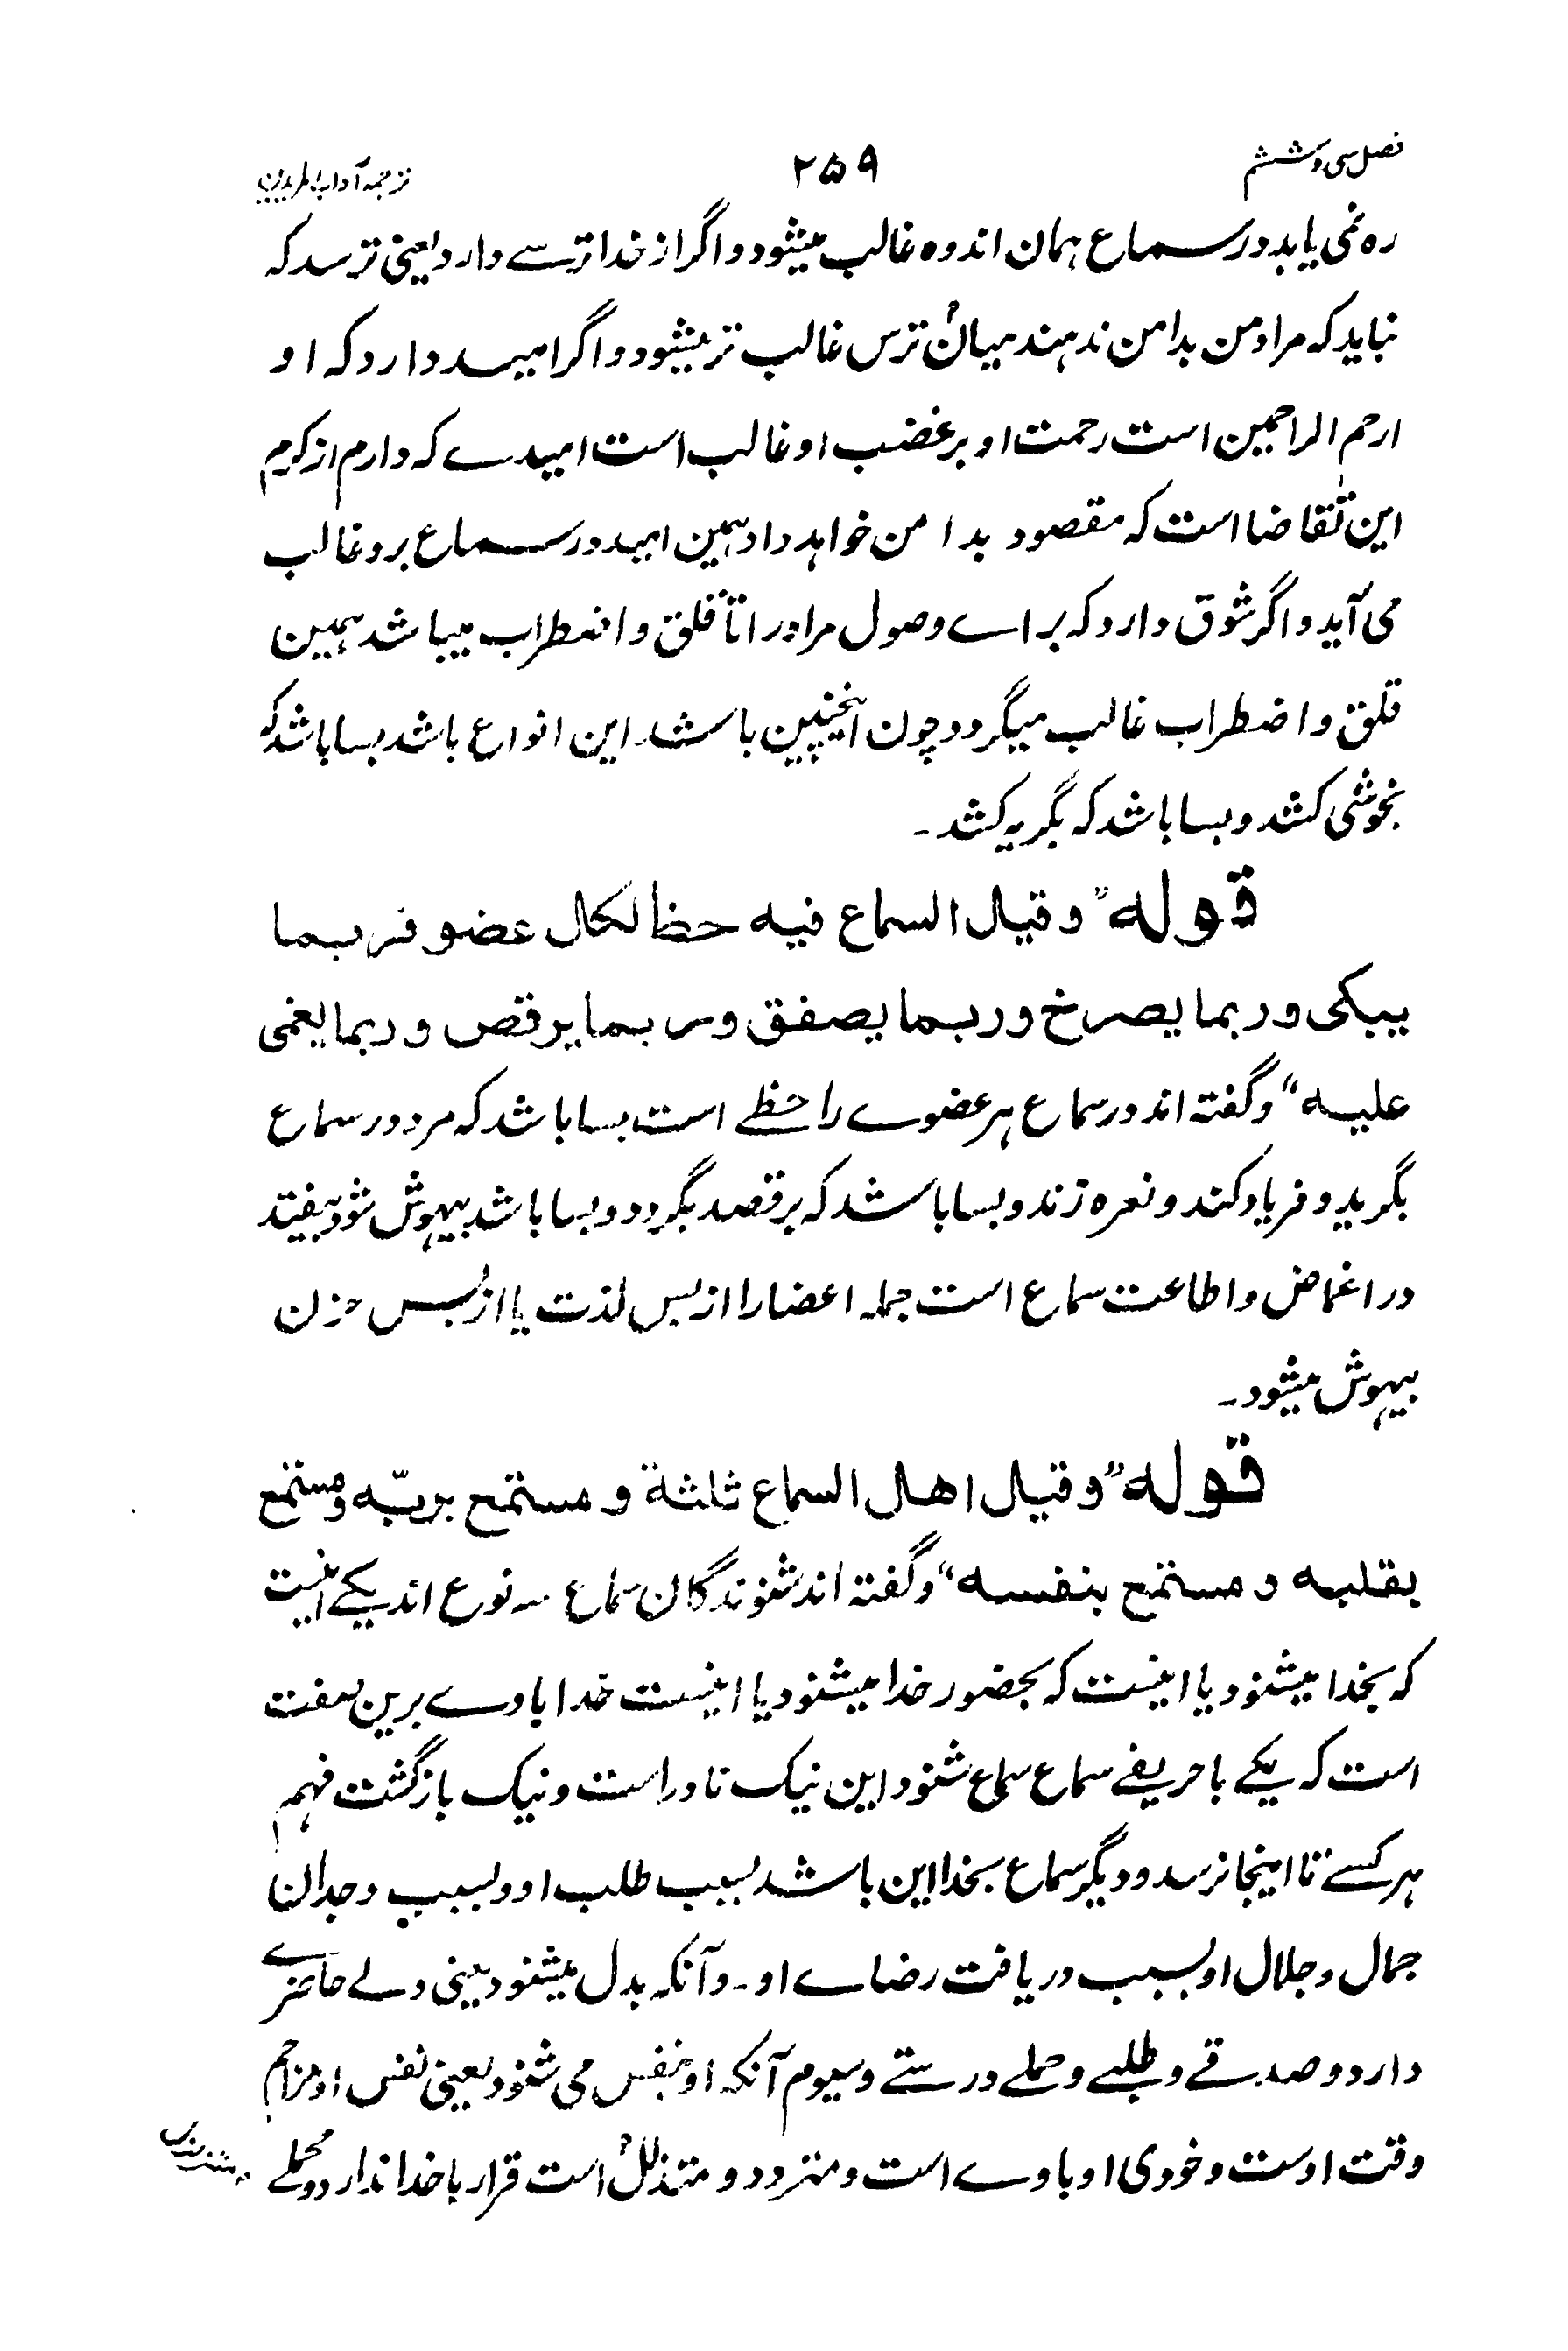 فصل سی و ششم
۲۵۹
ترجمه آداب المریدین
ره نمی یابد در سماع همان اندوه غالب میشود و اگر از خدا ترسے دارد یعنی ترسد که
نباید که مراد من بدا من ندهند میان ترس غالب تر میشود و اگر امید دارد که او
ارحم الراحمین است رحمت او بر غضب او غالب است امیدے که دارم از کرم
این تقاضا است که مقصود بدا من خواهد داد همین امید در سماع برو غالب
می آید و اگر شوق دارد که براے وصول مراد را تا قلق و اضطراب میباشد همین
قلق و اضطراب غالب میگردد چون اینچنین باشد این انواع باشد بسا باشد که
بخوشی کشد و بسا باشد که بگریه کشد۔
قوله "وقیل السماع فیه حظا لکل عضو فربما
یبکی وربما یصرخ وربما یصفق وربما یرقص وربما یغمی
علیه" و گفته اند در سماع هر عضوے را حظے است بسا باشد که مرد در سماع
بگرید و فریاد کند و نعره زند و بسا باشد که برقصد بگردد و بسا باشد بیهوش شود بیفتد
در اغماض و اطاعت سماع است جمله اعضا را از بس لذت یا از بس حزن
بیهوش میشود۔
قوله "وقیل اهل السماع ثلثة و مستمع بربّه ومستمع
بقلبه و مستمع بنفسه" و گفته اند شنوندگان سماع سه نوع اند یکے اینست
که بخدا میشنود یا اینست که بحضور خدا میشنود یا اینست خدا باوے برین صفت
است که یکے با حریفے سماع سماع شنود این نیک نادر است و نیک بازگشت فهم
هر کسے تا اینجا نرسد و دیگر سماع بخدا این باشد بسبب طلب او و بسبب وجدان
جمال و جلال او بسبب دریافت رضاے او۔ و آنکه بدل میشنود یعنی دلے حاضرے
دارد و صدقے و طلبے و حملے درستے و سیوم آنکه او بنفس می شنود یعنی نفس او مزاحم
وقت اوست و خودی او باوے است و متردد و متذلل است قرار با خدا ندارد و محلے